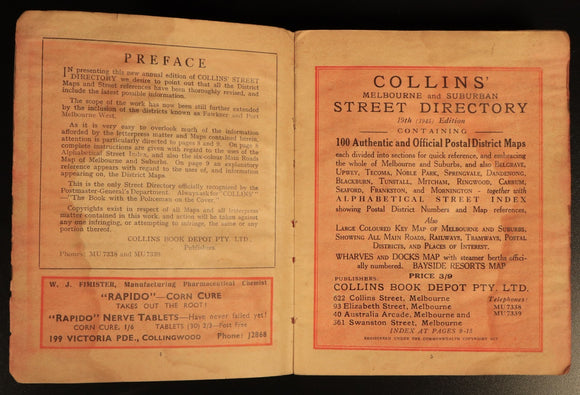 PREFACE
IN presenting this new annual edition of COLLINS' STREET
DIRECTORY we desire to point out that all the District
Maps and Street references have been thoroughly revised, and
include the latest possible information.
The scope of the work has now been still further extended
by the inclusion of the districts known as Fawkner and Port
Melbourne West.
As it is very easy to overlook much of the information
afforded by the letterpress matter and Maps contained herein,
attention is particularly directed to pages 8 and 9. On page 8
complete instructions are given with regard to the uses of the
Alphabetical Street Index, and also the six-colour Main Roads
Map of Melbourne and Suburbs. On page 9 an explanatory
reference appears with regard to the uses of, and information
appearing on, the District Maps.
This is the only Street Directory officially recognized by the
Postmaster-General's Department. Always ask for "COLLINS'"
—"The Book with the Policeman on the Cover."
Copyrights exist in respect of all Maps and all letterpress
matter contained in this work, and action will be taken against
any one infringing, or attempting to infringe, the same or any
portion thereof.
COLLINS BOOK DEPOT PTY. LTD.
Publishers
Phones: MU 7338 and MU 7339
W. J. FIMISTER, Manufacturing Pharmaceutical Chemist
"RAPIDO"—CORN CURE
TAKES OUT THE ROOT!
"RAPIDO" NERVE TABLETS—Have never failed yet!
CORN CURE, 1/6 TABLETS (30) 2/3—Post Free
199 VICTORIA PDE., COLLINGWOOD Phone: J2868
COLLINS'
MELBOURNE and SUBURBAN
STREET DIRECTORY
19th (1945) Edition
— CONTAINING —
100 Authentic and Official Postal District Maps
each divided into sections for quick reference, and embracing
the whole of Melbourne and Suburbs, and also BELGRAVE,
UPWEY, TECOMA, NOBLE PARK, SPRINGVALE, DANDENONG,
BLACKBURN, TUNSTALL, MITCHAM, RINGWOOD, CARRUM,
SEAFORD, FRANKSTON, and MORNINGTON - together with
ALPHABETICAL STREET INDEX
showing Postal District Numbers and Map references,
Also
LARGE COLOURED KEY MAP OF MELBOURNE AND SUBURBS,
SHOWING ALL MAIN ROADS, RAILWAYS, TRAMWAYS, POSTAL
DISTRICTS, AND PLACES OF INTEREST.
WHARVES and DOCKS MAP with steamer berths offici-
ally numbered. BAYSIDE RESORTS MAP
PRICE 3/9
PUBLISHERS:
COLLINS BOOK DEPOT PTY. LTD.
622 Collins Street, Melbourne Telephones:
93 Elizabeth Street, Melbourne MU 7338
40 Australia Arcade, Melbourne and MU 7339
361 Swanston Street, Melbourne
INDEX AT PAGES 9-18
REGISTERED UNDER THE COMMONWEALTH COPYRIGHT ACT